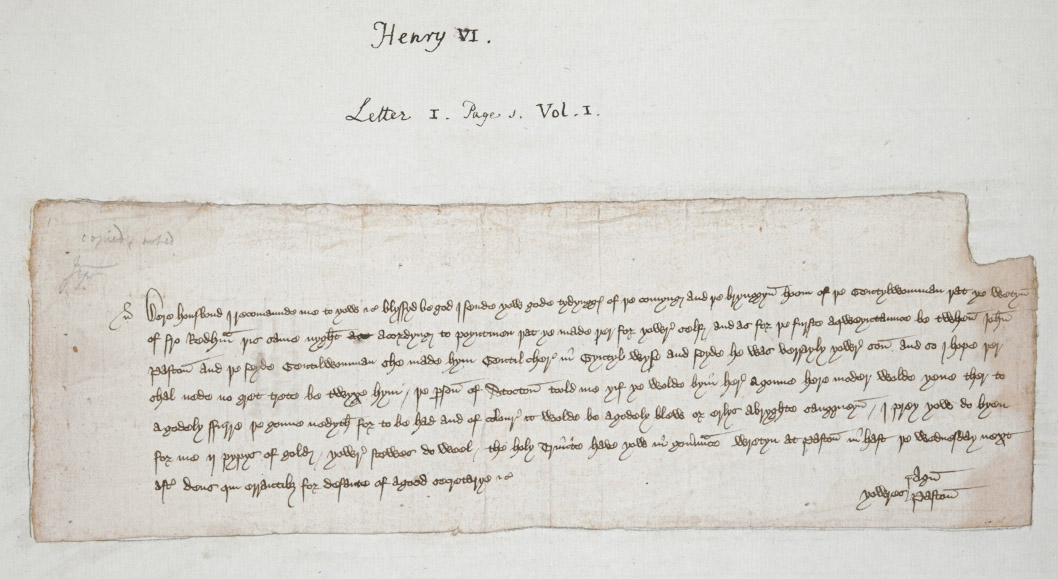 Henry VI.
Letter I. Page 1. Vol. I.
copied, noted
Dere housbond I recomaunde me to yow &c blyssyd be god I sende yow gode tydynggs of þe comyng and þe brynggyn hoom of þe Gentylwomman þat ye wetyn
of fro Redhm þis same nyght acordyng to poyntmen þat ye made þer for yowr self and as for þe furste aqweyntaunce be twhen John
Paston and þe seyde Gentilwomman she made hym Gentil cher in Gyntyl wyse and seyde he was verrayly yowr son and so I hope þer
shal nede no gret trete be twyxe hym / þe pson of Stocton toold me yif ye wolde byin her a goune here moder wolde yeue ther to
a godely ffurre þe goune nedyth for to be had and of colour it wolde be a godely blew or erlys a bryghte sanggueyn / I prey yow do byen
for me ij pypys of gold / yowr stewes do weel / the holy Trinite have yow in gouernaunce wretyn at Paston in hast þe wednesday next
aftr deus qui errantibz for defaute of a good secretarye &c
yowres Agn Paston